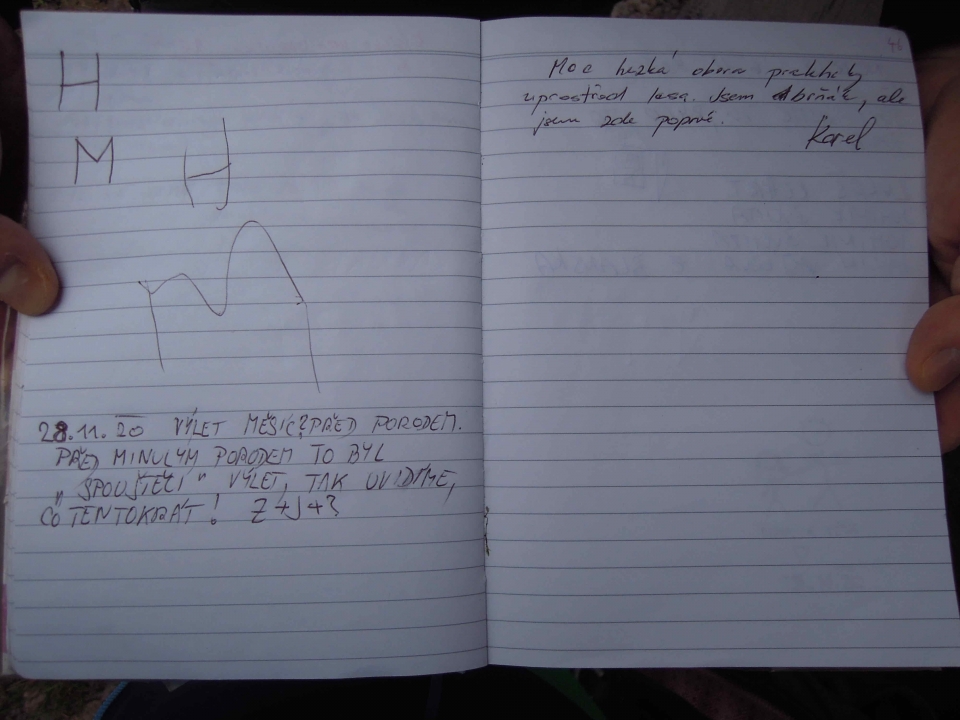 H
M H
M
28.11.20 VÝLET MĚSÍC? PŘED PORODEM.
PŘED MINULÝM PORODEM TO BYL
„SPOUŠTĚCÍ" VÝLET, TAK UVIDÍME,
CO TENTOKRÁT! Z+J+?
Moc hezká obora prakticky
uprostřed lesa. Jsem brňák, ale
jsem zde poprvé.
Karel